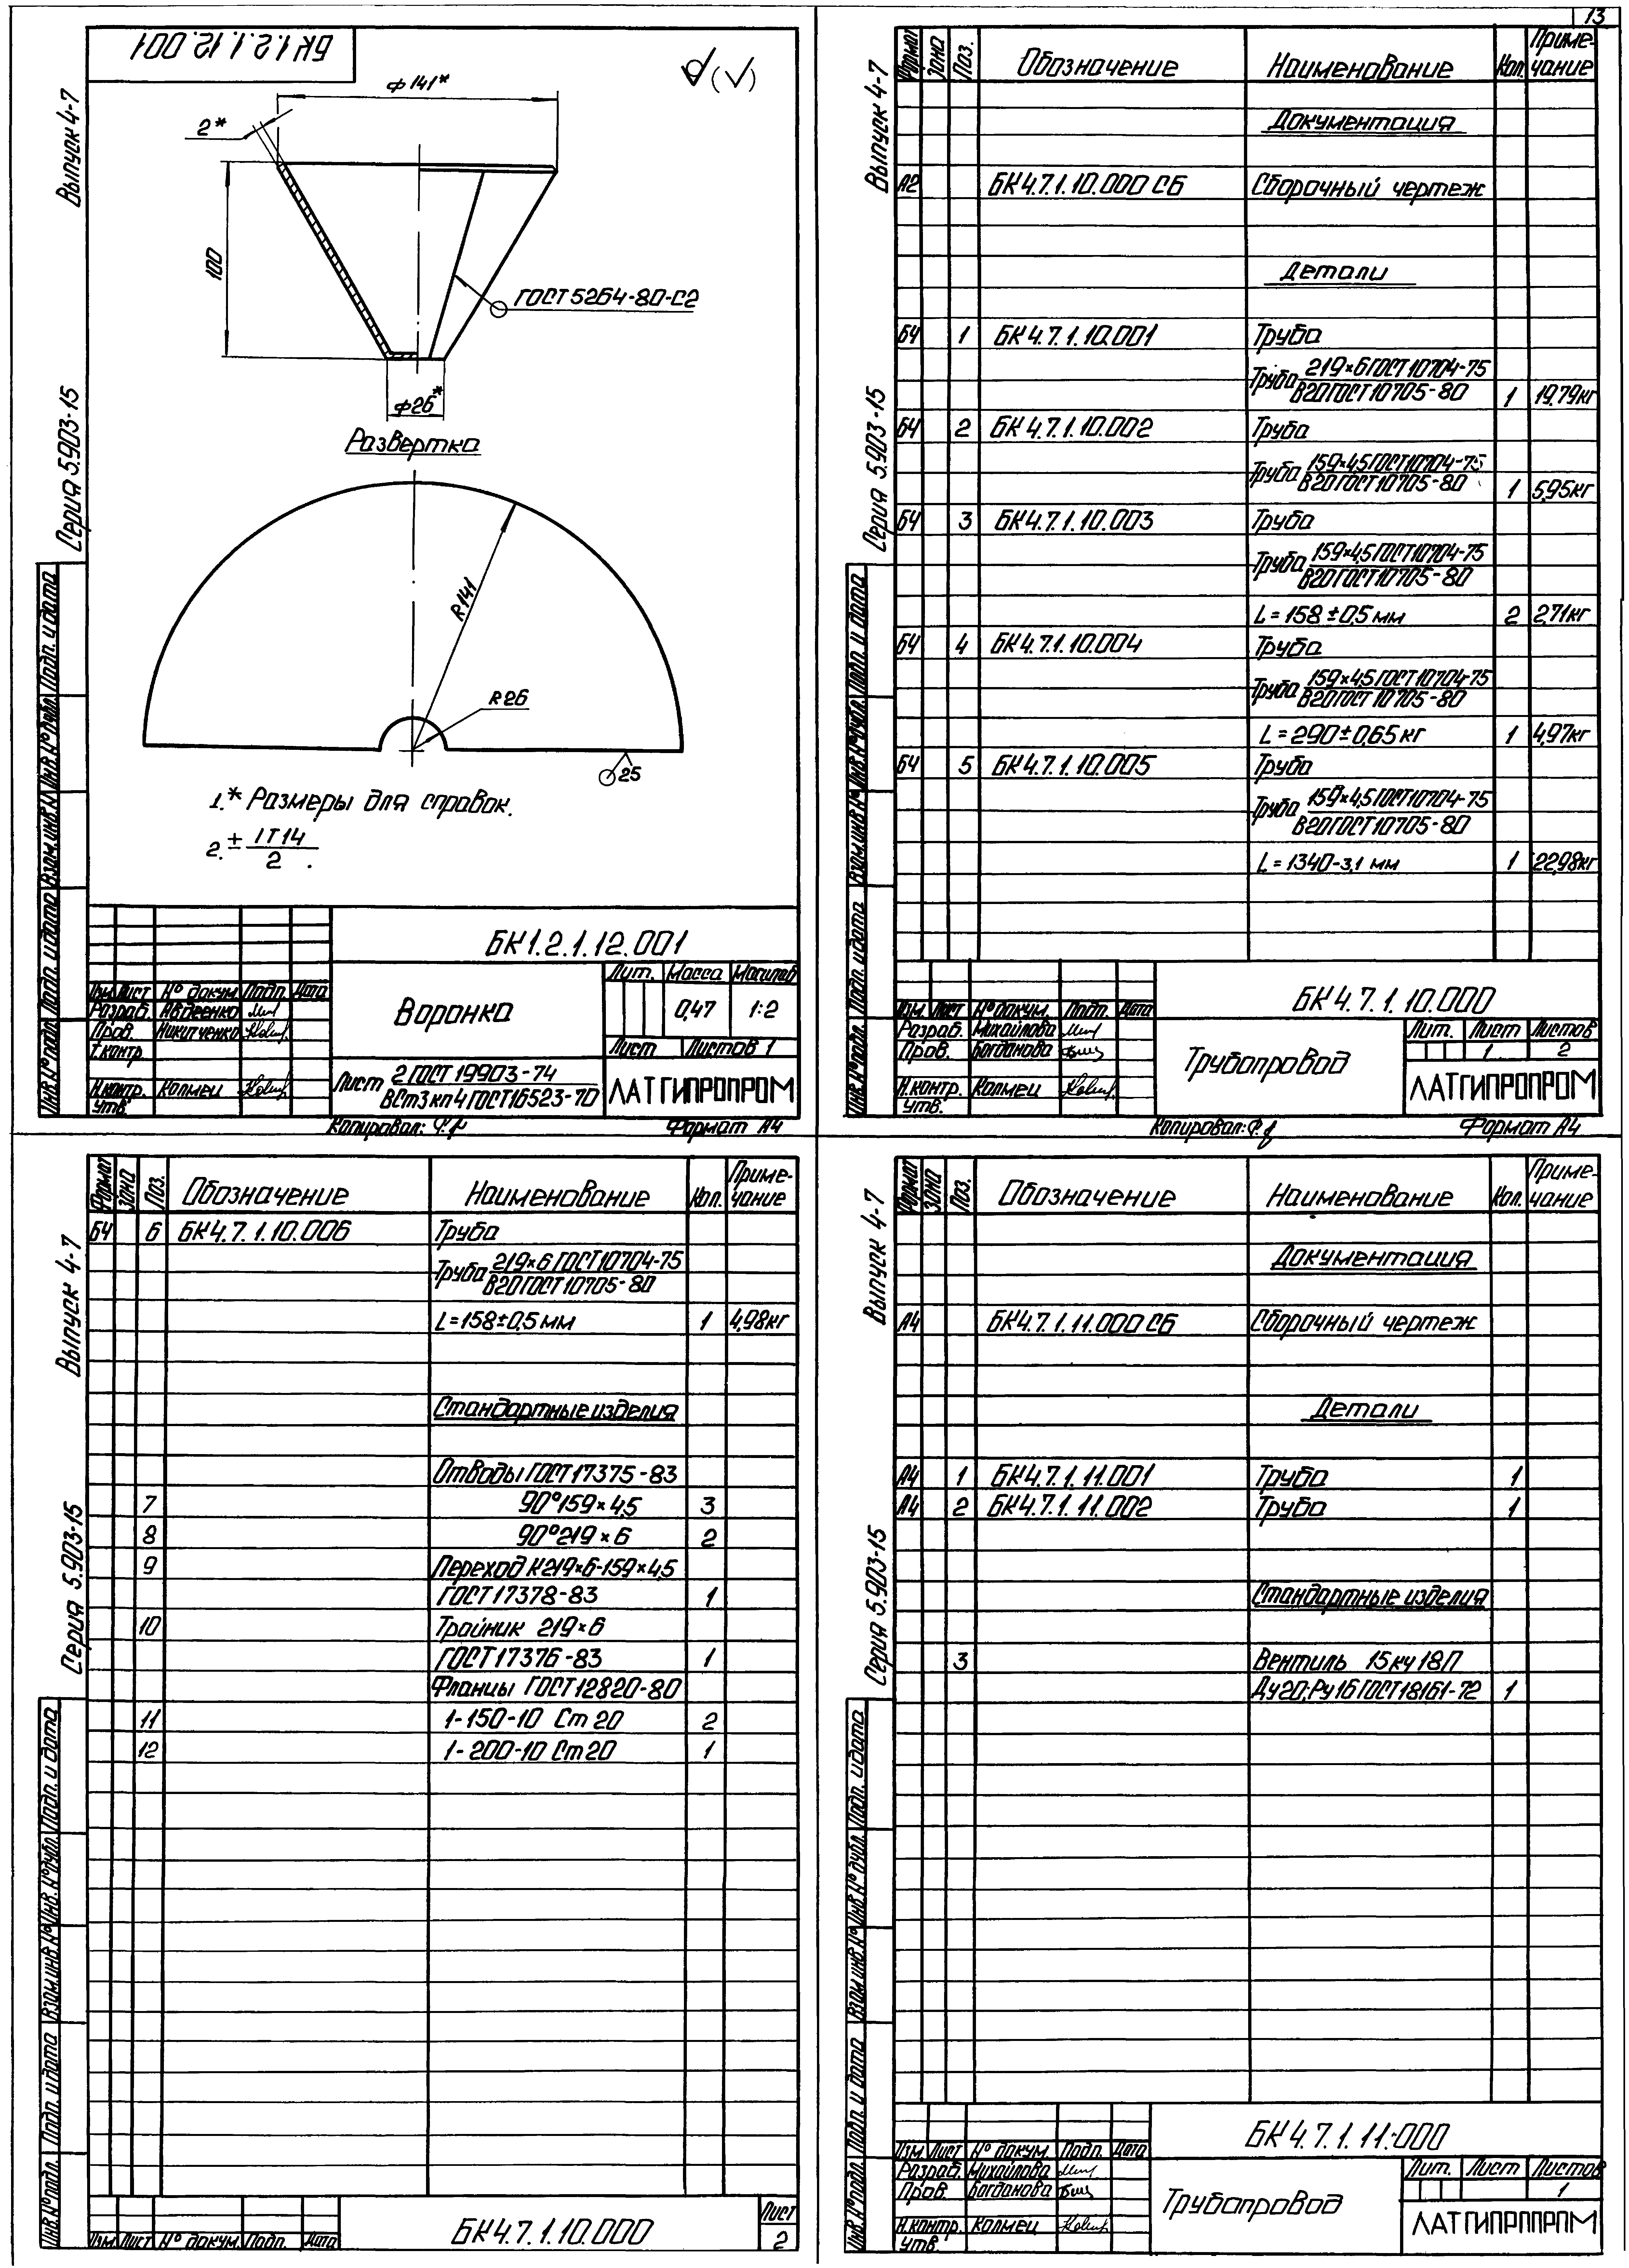 13
БК1.2.1.12.001
Выпуск 4-7
Серия 5.903-15
ϕ141*
2*
100
ГОСТ 5264-80-С2
ϕ26*
Развертка
R141
R26
25
1.* Размеры для справок.
2. ± IT14
2 .
Инв.№подл. Подп. и дата Взам.инв.№ Инв.№дубл. Подп. и дата
БК1.2.1.12.001
Лит. Масса Масштаб
Изм. Лист № докум. Подп. Дата
Разраб. Авдеенко
Пров. Никитченко
Т.контр.
Н.контр. Колмец
Утв.
Воронка
0,47 1:2
Лист Листов 1
Лист 2 ГОСТ 19903-74
ВСт3кп4 ГОСТ16523-70
ЛАТГИПРОПРОМ
Копировал: Формат А4
Выпуск 4-7
Серия 5.903-15
Формат Зона Поз. Обозначение Наименование Кол. Приме-
чание
Документация
А2 БК4.7.1.10.000 СБ Сборочный чертеж
Детали
БЧ 1 БК4.7.1.10.001 Труба
Труба 219×6 ГОСТ 10704-75
В20ГОСТ10705-80 1 19.79кг
БЧ 2 БК4.7.1.10.002 Труба
Труба 159×4,5ГОСТ10704-75
В20ГОСТ10705-80 1 5,95кг
БЧ 3 БК4.7.1.10.003 Труба
Труба 159×4,5ГОСТ10704-75
В20ГОСТ10705-80
L=158±0,5 мм 2 2,71кг
БЧ 4 БК4.7.1.10.004 Труба
Труба 159×4,5ГОСТ10704-75
В20ГОСТ10705-80
L=290±0,65 кг 1 4,97кг
БЧ 5 БК4.7.1.10.005 Труба
Труба 159×4,5ГОСТ10704-75
В20ГОСТ10705-80
L=1340-3,1 мм 1 22,98кг
Инв.№подл. Подп. и дата Взам.инв.№ Инв.№дубл. Подп. и дата
БК4.7.1.10.000
Изм. Лист № докум. Подп. Дата
Разраб. Михайлова
Пров. Богданова
Н.контр. Колмец
Утв.
Трубопровод
Лит. Лист Листов
1 2
ЛАТГИПРОПРОМ
Копировал: Формат А4
Выпуск 4-7
Серия 5.903-15
Формат Зона Поз. Обозначение Наименование Кол. Приме-
чание
БЧ 6 БК4.7.1.10.006 Труба
Труба 219×6 ГОСТ10704-75
В20ГОСТ10705-80
L=158±0,5 мм 1 4,98кг
Стандартные изделия
Отводы ГОСТ17375-83
7 90°159×4,5 3
8 90°219×6 2
9 Переход К219×6-159×4,5
ГОСТ17378-83 1
10 Тройник 219×6
ГОСТ17376-83 1
Фланцы ГОСТ12820-80
11 1-150-10 Ст20 2
12 1-200-10 Ст20 1
Инв.№подл. Подп. и дата Взам.инв.№ Инв.№дубл. Подп. и дата
Изм. Лист № докум. Подп. Дата
БК4.7.1.10.000
Лист
2
Выпуск 4-7
Серия 5.903-15
Формат Зона Поз. Обозначение Наименование Кол. Приме-
чание
Документация
А4 БК4.7.1.11.000 СБ Сборочный чертеж
Детали
А4 1 БК4.7.1.11.001 Труба 1
А4 2 БК4.7.1.11.002 Труба 1
Стандартные изделия
3 Вентиль 15кч18П
Ду20;Ру16 ГОСТ18161-72 1
Инв.№подл. Подп. и дата Взам.инв.№ Инв.№дубл. Подп. и дата
БК4.7.1.11.000
Изм. Лист № докум. Подп. Дата
Разраб. Михайлова
Пров. Богданова
Н.контр. Колмец
Утв.
Трубопровод
Лит. Лист Листов
1
ЛАТГИПРОПРОМ